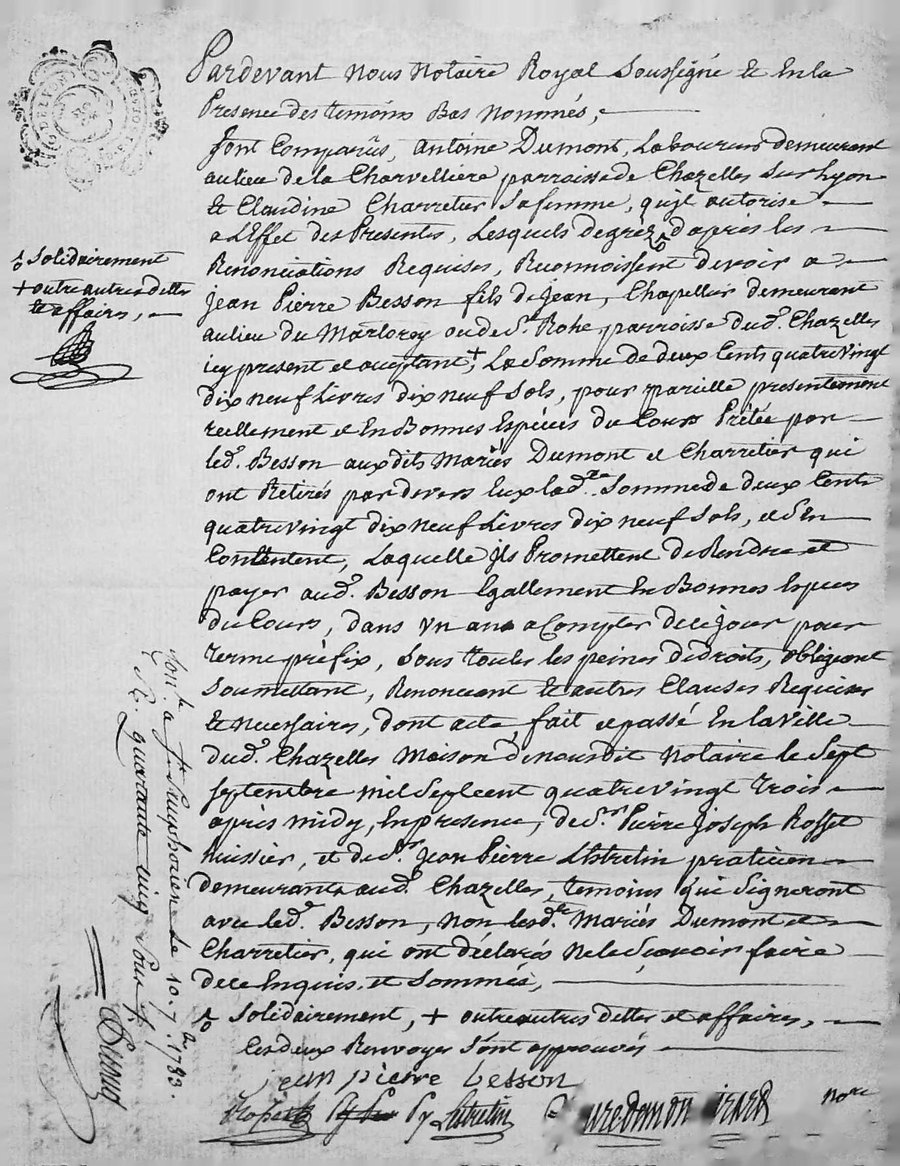 Pardevant Nous Notaire Royal Soussigné Et Enla
Presence des temoins Bas Nommés,
sont Comparûs, Antoine Dumont, Laboureur demeurant
aulieu de la Charvelliere parroisse de Chazelles sur Lyon
Et Claudine Charretier sa femme, quil autorise
a L'Effet des Presentes, Lesquels degrèz d'après les
Renonciations Requises, Reconnoissent devoir a
jean Pierre Besson fils de Jean, Chapellier demeurant
aulieu du Martorey ou de St. Rohe parroisse dud. Chazelles
icy present et aceptant +, La Somme de deux Cents quatre Vingt
dix neuf Livres dix neuf Sols, pour pareille presentement
reellement et En Bonnes Espéces du Cours Prêtée par
led. Besson aux dits Mariés Dumont et Charretier qui
ont Retirés par devers Eux lad.te Somme de deux Cents
quatre vingt dix neuf Livres dix neuf Sols, et S'En
Contentent, Laquelle ils Promettent de Rendre et
payer aud. Besson Egallement En Bonnes Espéces
du Cours, dans un an a Compter de ce jour pour
terme préfix, sous toutes les peines de droits, obligeant
Soumettant, Renonceant Et autres Clauses Requises
Et necessaires, dont acte, fait et passé En la Ville
dud. Chazelles Maison de nousdit Notaire le Sept
septembre mil Sept cent quatre vingt trois
après midy, En presence, de Sr. Pierre Joseph Rosset
huissier, et de Sr. Jean Pierre Lhstretin praticien
demeurants aud. Chazelles, temoins qui Signeront
avec led. Besson, non lesd. Mariés Dumont et
Charretier, qui ont déclarés ne le Sçavoir faire
de ce Enquis, et Sommés,
Solidairement, + outre autres dettes et affaires,
les deux Renvoyes Sont approuvés
jean pierre besson
Lestretin
Nore
Solidairement
+ outre autres dettes
et affaires,
Con.le a St. Simphorien le 10. 7. 1783.
R. quarante cinq Sous